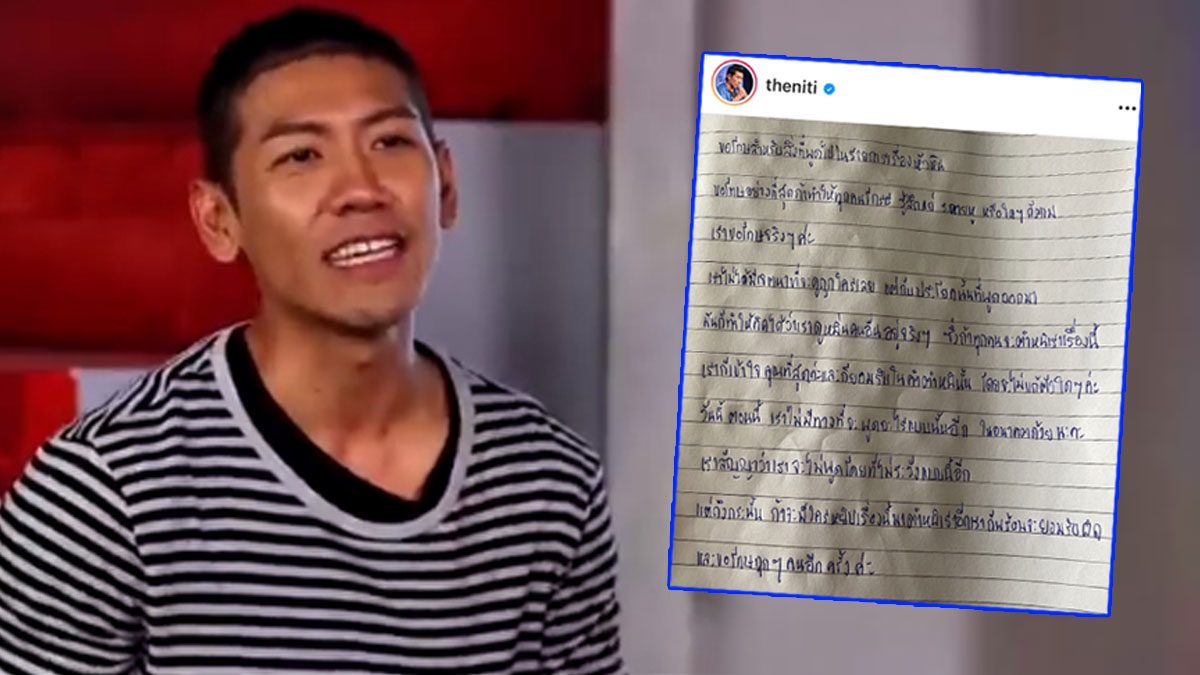 theniti
ขอโทษสำหรับสิ่งที่พูดไปในรายการเรื่องหัวหิน
ขอโทษอย่างที่สุดถ้าทำให้ทุกคนโกรธ รู้สึกแย่ ระคายหู หรือใดๆก็ตาม
เราขอโทษจริงๆค่ะ
เราไม่ได้มีเจตนาที่จะดูถูกใครเลย แต่กับประโยคนั้นที่พูดออกมา
มันก็ทำให้คิดได้ว่าเราดูหมิ่นคนอื่นอยู่จริงๆ ซึ่งถ้าทุกคนจะตำหนิเราเรื่องนี้
เราก็เข้าใจ คุณที่สุดค่ะและก็ยอมรับในคำตำหนินั้น โดยจะไม่แก้ตัวใดๆค่ะ
วันนี้ ตอนนี้ เราไม่มีทางที่จะ พูดอะไรแบบนั้นอีก ในอนาคตด้วย นะคะ
เราสัญญาว่าเรา จะไม่พูดโดยที่ไม่ระวังแบบนี้อีก
แต่ถึงกระนั้น ถ้าจะมีใครหยิบเรื่องนี้มาตำหนิเราอีกเราก็พร้อมจะยอมรับผิด
และขอโทษทุกๆคนอีก ครั้ง ค่ะ